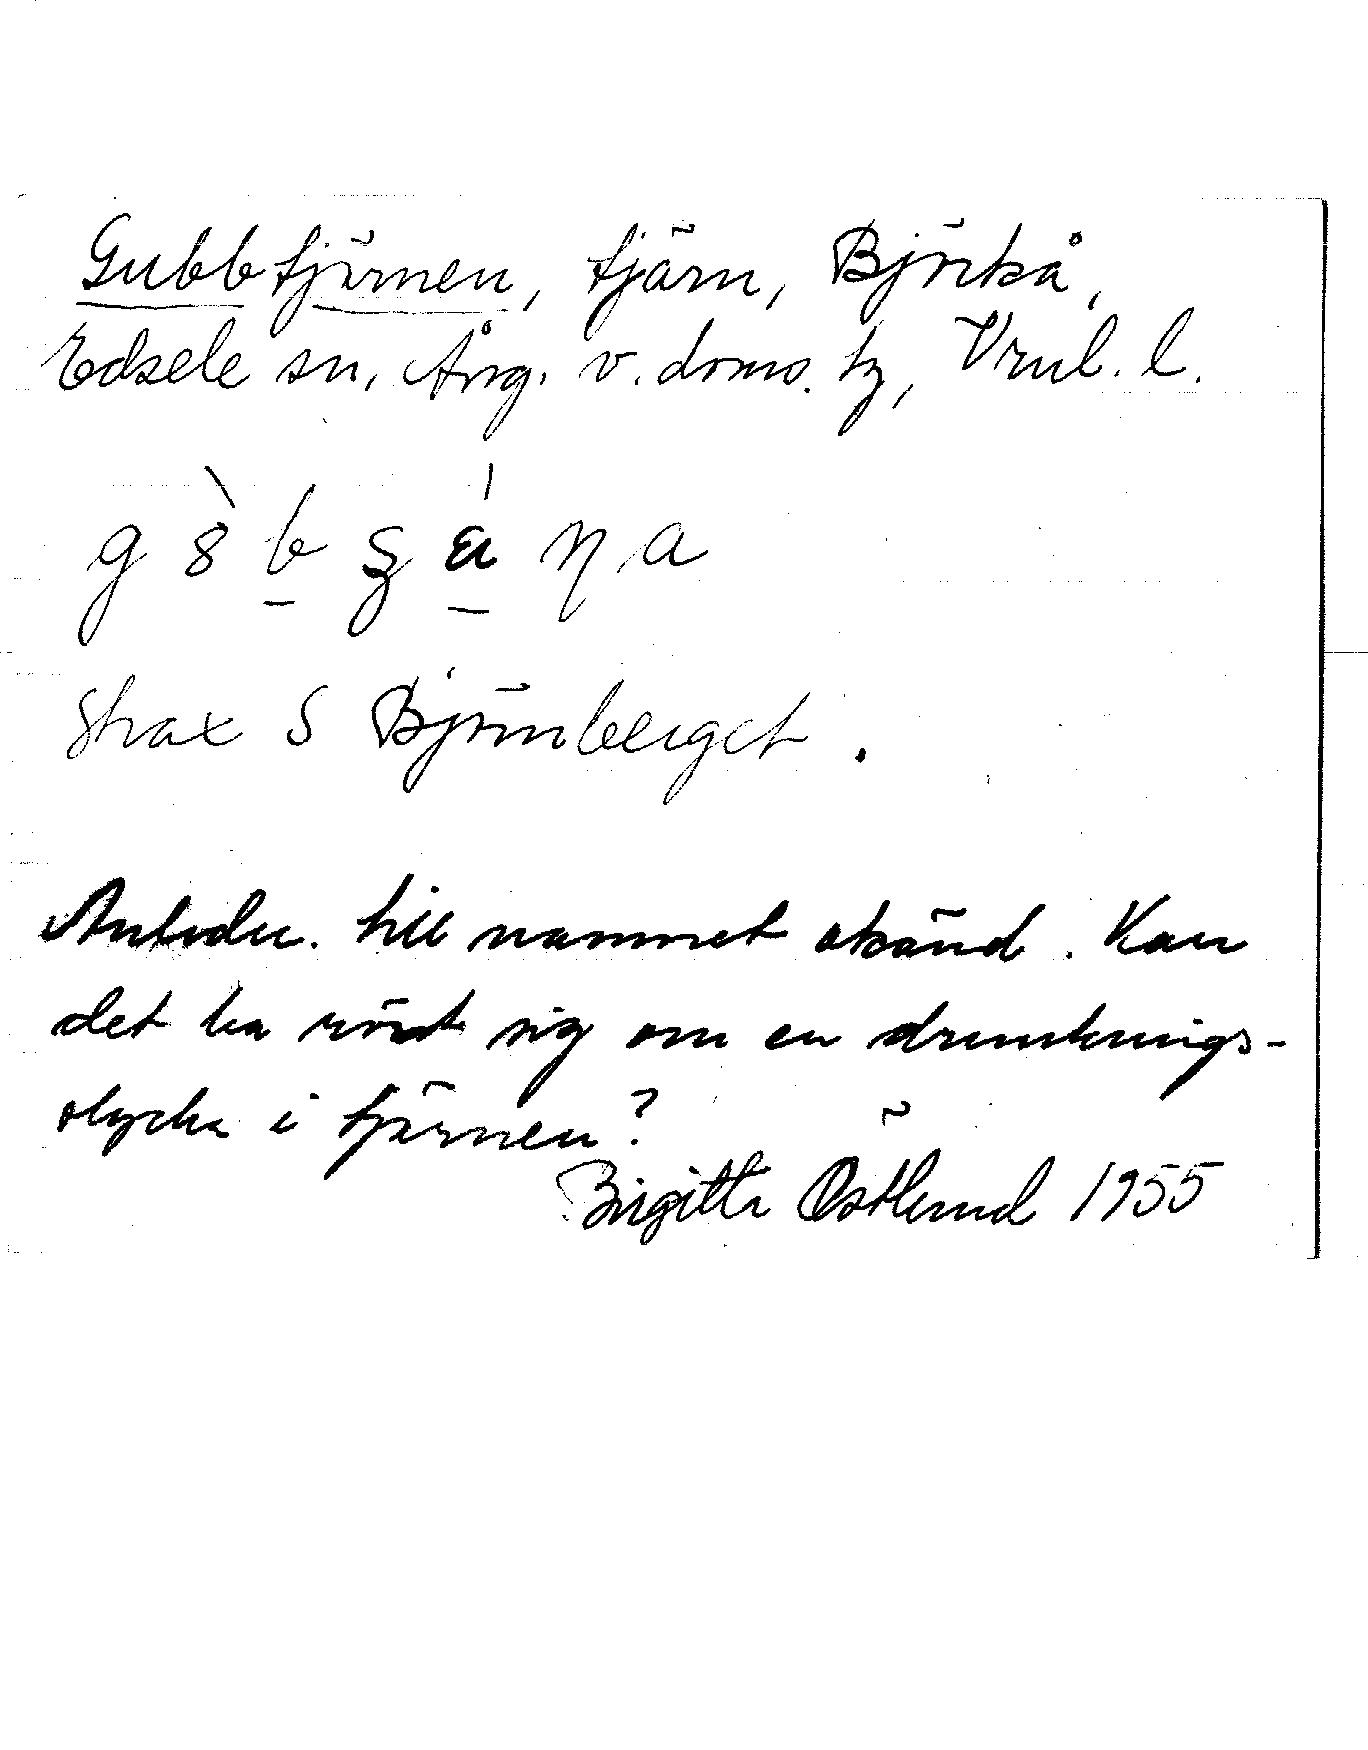 Gubbtjärnen, tjärn, Björkå,
Edsele sn, Ång. v. doms. hz, Vrnl. l.
strax S Björnberget.
Anledn. till namnet okänd. Kan
det ha rört sig om en drunknings-
olycka i tjärnen?
Birgitta Östlund 1955